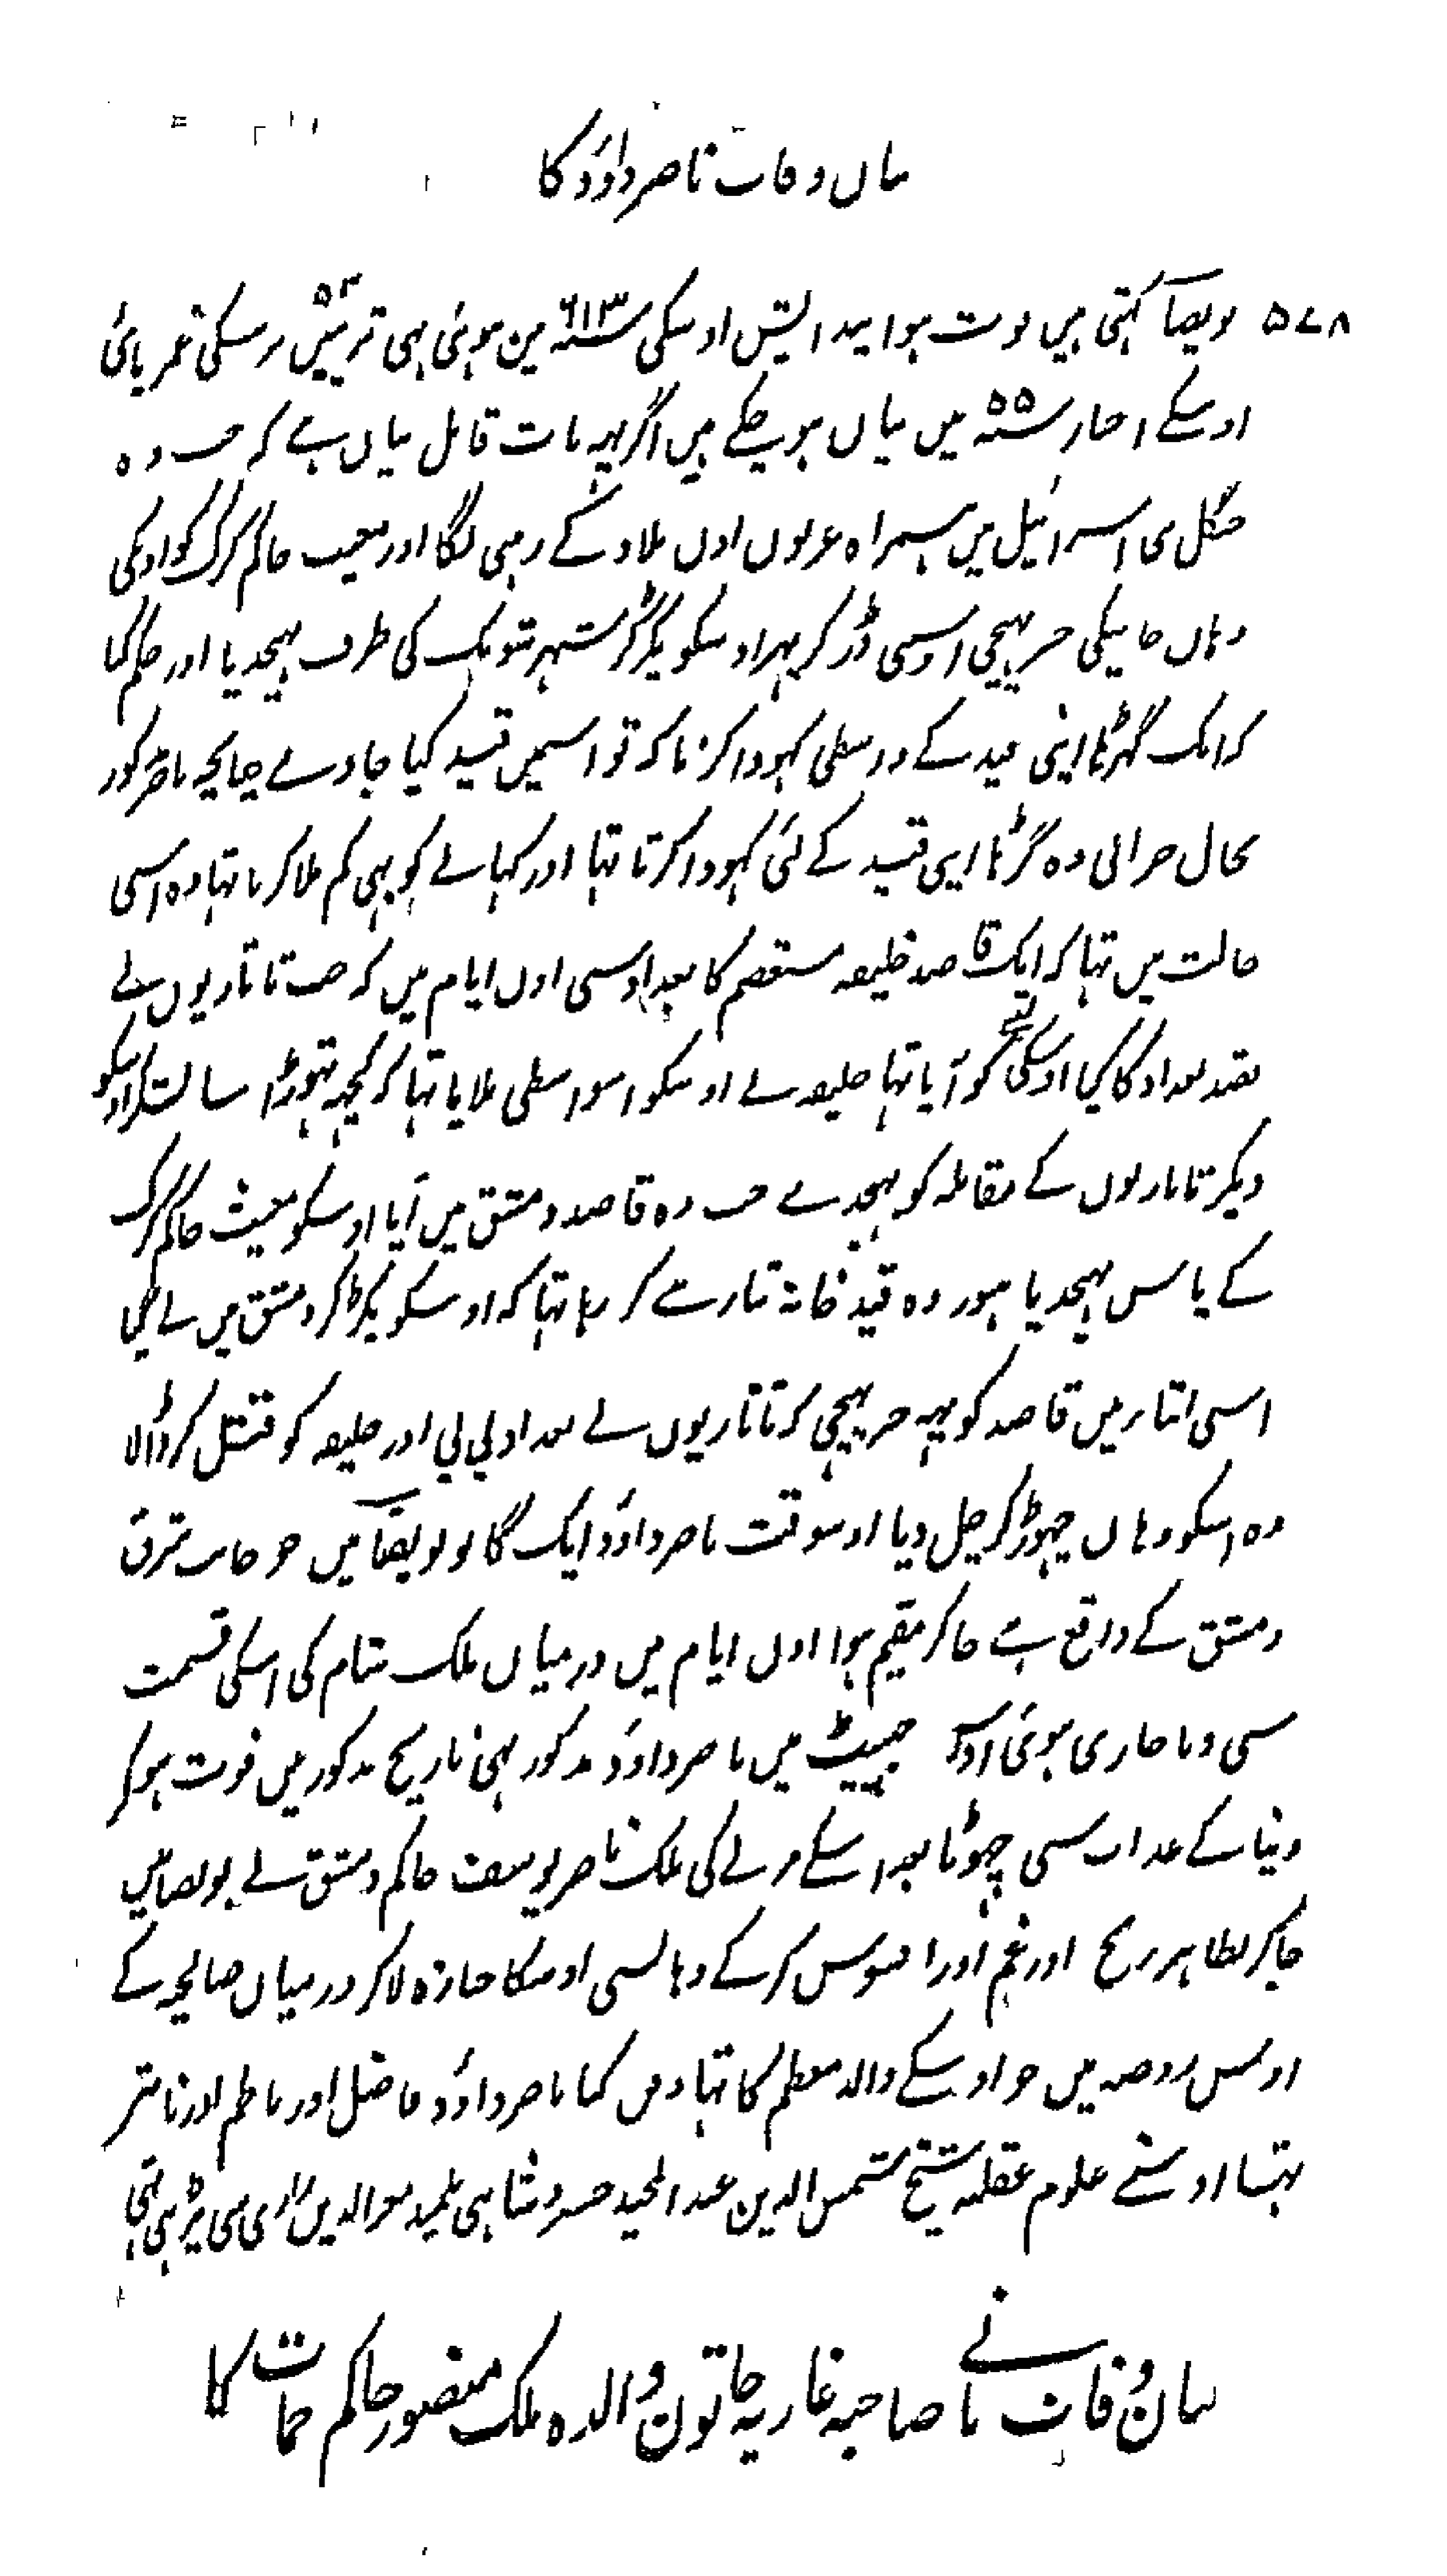 بیان وفات ناصر داؤد کا
۵۷۸ بویضا کہتی ہیں فوت ہوا پیدایش اوسکی ۶۱۳سنہ مین ہوئی ہی تریپن ۵۳ برسکی عمر پائی
اوسکے اخبار ۵۵سنہ میں بیان ہو چکے ہیں اگر یہہ بات قابل بیان ہے کہ جب وہ
جنگل بنی اسرائیل میں ہمراہ عربوں اون بلاد کے رہنی لگا اور مغیث حاکم کرک کو اوسکی
وہاں جانیکی خبر پہنچی اوسسی ڈر کر پہر اوسکو پکڑ کر شہر شوبک کی طرف بہیجدیا اور حکم کیا
کہ ایک گہڑہا اپنی قید کے واسطی کہودا کرنا کہ تو اسمیں قید کیا جاوے چنانچہ ناصر مذکور
بحال خرابی وہ گڑہا اپنی قید کے لئی کہودا کرتا تہا اور کہانے کو بہی کم ملا کرتا تہا وہ اسی
حالت میں تہا کہ ایک قاصد خلیفہ مستعصم کا بغداد سی اون ایام میں کہ جب تاتاریوں نے
قصد بغداد کا کیا اوسکی لینے کو آیا تہا خلیفہ نے اوسکو اسواسطی بلایا تہا کہ کچہہ تہوڑا سا لشکر اوسکو
دیکر تاتاریوں کے مقابلہ کو بہیجدے جب وہ قاصد دمشق میں آیا اوسکو مغیث حاکم کرک
کے پاس بہیجدیا ہنوز وہ قید خانہ تیار سے کر رہا تہا کہ اوسکو پکڑ کر دمشق میں لے گیا
اسی اثناء میں قاصد کو یہہ خبر پہنچی کہ تاتاریوں نے بغداد لی لی اور خلیفہ کو قتل کر ڈالا
وہ اسکو وہاں چہوڑ کر چل دیا اوسوقت ناصر داؤد ایک گانو بویضا میں جو جانب شرق
دمشق کے واقع ہے جا کر مقیم ہوا اون ایام میں درمیان ملک شام کی اسکی قسمت
سی وبا جاری ہوئی اوس جہپیٹ میں ناصر داؤد مذکور بہی تاریخ مذکور میں فوت ہو کر
دنیا کے عذاب سی چہوٹا بعد اسکے مرنے کی ملک ناصر یوسف حاکم دمشق نے بویضا میں
جاکر بظاہر رنج اور غم اور افسوس کرکے وہانسی اوسکا جنازہ لاکر درمیان صالحیہ کے
اوس روضہ میں جو اوسکے والد معظم کا تہا دفن کیا ناصر داؤد فاضل اور ناظم اور ناثر
تہا اوسنے علوم عقلیہ شیخ شمس الدین عبد الحمید خسرو شاہی تلمیذ فخر الدین رازی سی پڑہی تہی
بیان وفات پانے صاحبہ غازیہ خاتون والدہ ملک منصور حاکم حمات کا